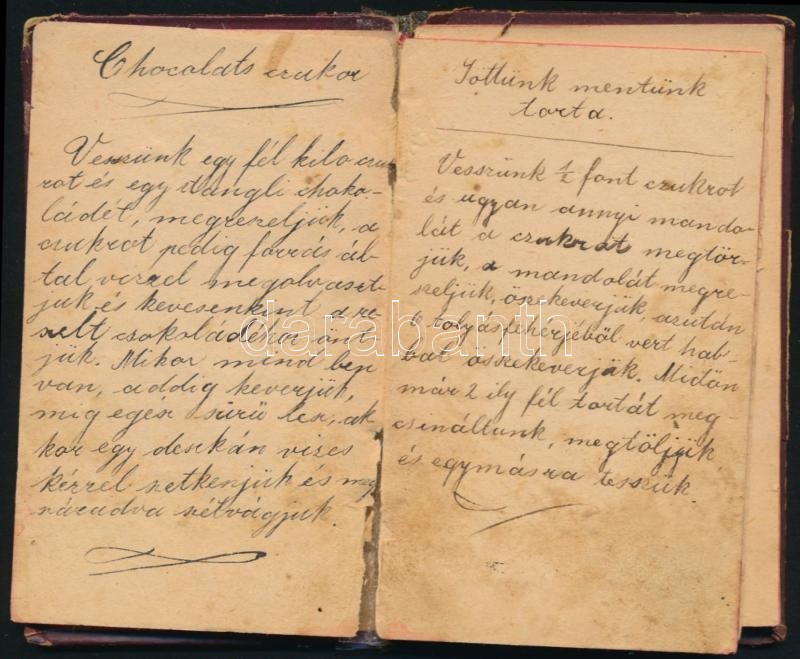 Chocolats czukor
Vesszünk egy fél kilo czu-
rot és egy stangli choko-
ládét, megreszeljük, a
csukrot pedig forrás ál-
tal vizzel megolvaszt-
juk és kevesenként a re-
szelt csokoládéhoz önt
jük. Mikor mind ben
van, addig keverjük,
mig egész sürü lesz, ak
kor egy deszkán vizes
kézzel szétkenjük és meg
száradva szétvágjuk.
Jöttünk mentünk
torta.
Vesszünk 1/2 font czukrot
és ugyan annyi mando-
lát a czukrot megtör-
jük, a mandolát megre-
szeljük, öszekeverjük, azután
6 tolyásfehérjéböl vert hab-
bal összekeverjük. Midön
már 2 ily fél tortát meg-
csináltunk, megtöljük
és egymásra tesszük.
darabanth